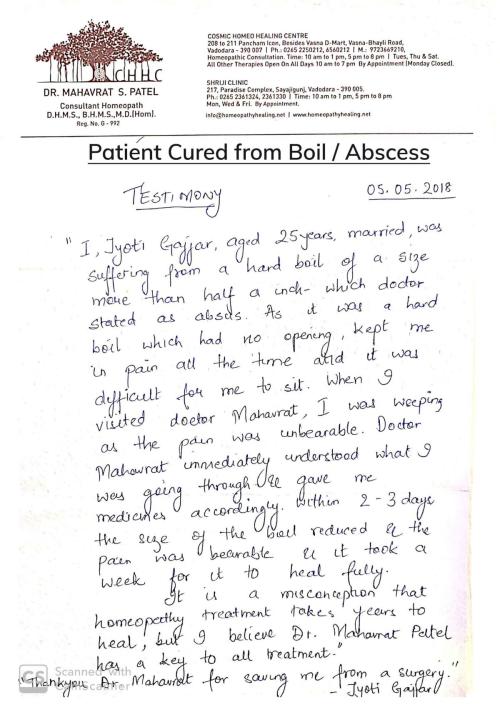 CHHC
DR. MAHAVRAT S. PATEL
Consultant Homeopath
D.H.M.S., B.H.M.S., M.D.(Hom).
Reg. No. G - 992
COSMIC HOMEO HEALING CENTRE
208 to 211 Pancham Icon, Besides Vasna D-Mart, Vasna-Bhayli Road,
Vadodara - 390 007 | Ph.: 0265 2250212, 6560212 | M.: 9723669210,
Homeopathic Consultation. Time: 10 am to 1 pm, 5 pm to 8 pm | Tues, Thu & Sat.
All Other Therapies Open On All Days 10 am to 7 pm By Appointment (Monday Closed).
SHRIJI CLINIC
217, Paradise Complex, Sayajigunj, Vadodara - 390 005.
Ph.: 0265 2361324, 2361330 | Time: 10 am to 1 pm, 5 pm to 8 pm
Mon, Wed & Fri. By Appointment.
info@homeopathyhealing.net | www.homeopathyhealing.net
Patient Cured from Boil / Abscess
TESTIMONY
05.05.2018
"I, Jyoti Gajjar, aged 25 years, married, was
suffering from a hard boil of a size
more than half a inch- which doctor
stated as absus. As it was a hard
boil which had no opening, kept me
in pain all the time and it was
difficult for me to sit. When I
visited doctor Mahavrat, I was weeping
as the pain was unbearable. Doctor
Mahavrat immediately understood what I
was going through & gave me
medicines accordingly. Within 2-3 days
the size of the boil reduced & the
pain was bearable & it took a
week for it to heal fully.
It is a misconception that
homeopathy treatment takes years to
heal, but I believe Dr. Mahavrat Patel
has a key to all treatment."
"Thankyou Dr. Mahavrat for saving me from a surgery."
- Jyoti Gajjar
CS Scanned with
CamScanner